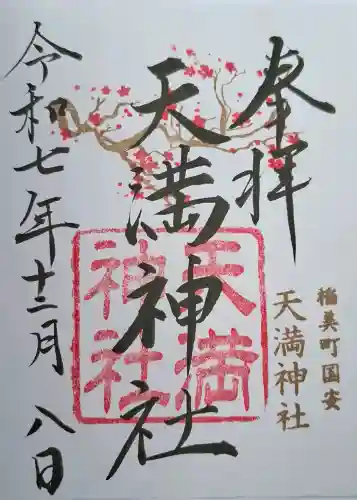 奉拝
稲美町国安
天満神社
天満神社
天満神社
令和七年十二月八日